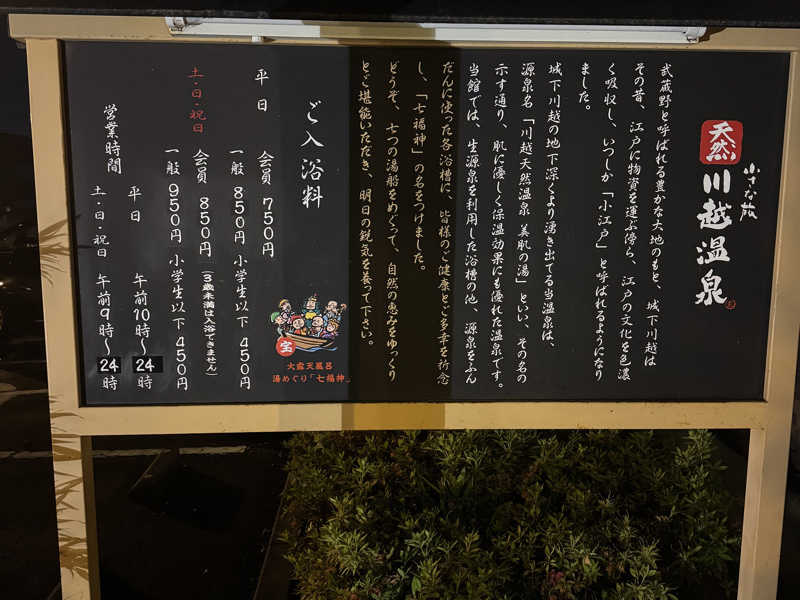 小さな旅
天然
川越温泉
武蔵野と呼ばれる豊かな大地のもと、城下川越は
その昔、江戸に物資を運ぶ傍ら、江戸の文化を色濃
く吸収し、いつしか「小江戸」と呼ばれるようになり
ました。
城下川越の地下深くより湧き出てる当温泉は、
源泉名「川越天然温泉 美肌の湯」といい、その名の
示す通り、肌に優しく保温効果にも優れた温泉です。
当館では、生源泉を利用した浴槽の他、源泉をふん
だんに使った各浴槽に、皆様のご健康とご多幸を祈念
し、「七福神」の名をつけました。
どうぞ、七つの湯船をめぐって、自然の恵みをゆっくり
とご堪能いただき、明日の鋭気を養って下さい。
宝
大露天風呂
湯めぐり「七福神」
ご入浴料
平日 会員 750円
一般 850円 小学生以下 450円
(3歳未満は入浴できません)
土・日・祝日 会員 850円
一般 950円 小学生以下 450円
営業時間
平日 午前10時～24時
土・日・祝日 午前9時～24時